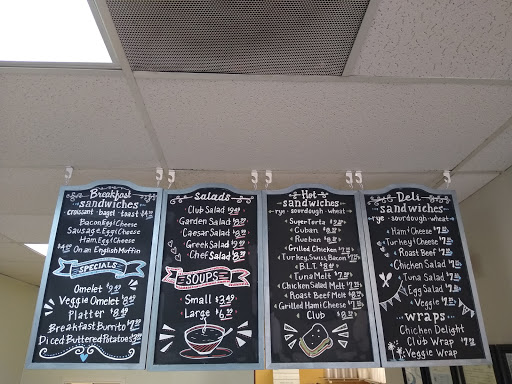 Breakfast
sandwiches
croissant · bagel · toast
Bacon Egg & Cheese
Sausage, Egg & Cheese
Ham, Egg & Cheese
On an English Muffin
SPECIALS
Omelet
Veggie Omelet
Platter
Breakfast Burrito
Diced Buttered Potatoes
Salads
Club Salad
Garden Salad
Caesar Salad
Greek Salad
Chef Salad
SOUPS
Small
Large
Hot
sandwiches
rye · sourdough · wheat
Super Torta
Cuban
Rueben
Grilled Chicken
Turkey, Swiss, Bacon
B.L.T.
Tuna Melt
Chicken Salad Melt
Roast Beef Melt
Grilled Ham & Cheese
Club
Deli
sandwiches
rye · sourdough · wheat
Ham & Cheese
Turkey & Cheese
Roast Beef
Chicken Salad
Tuna Salad
Egg Salad
Veggie
wraps
Chicken Delight
Club Wrap
Veggie Wrap